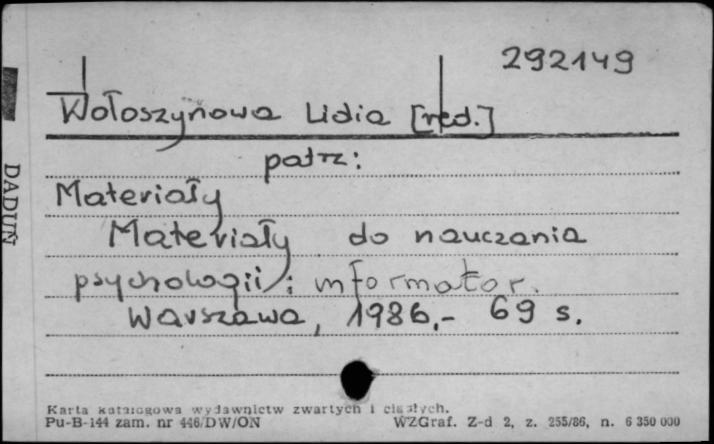 292149
Wołoszynowa Lidia [red.]
patrz:
Materiały
Materiały do nauczania
psychologii : informator.
Warszawa, 1986.- 69 s.
Karta katalogowa wydawnictw zwartych i ciągłych.
Pu-B-144 zam. nr 446/DW/ON WZGraf. Z-d 2, z. 255/86, n. 6 350 000
DADUŃ